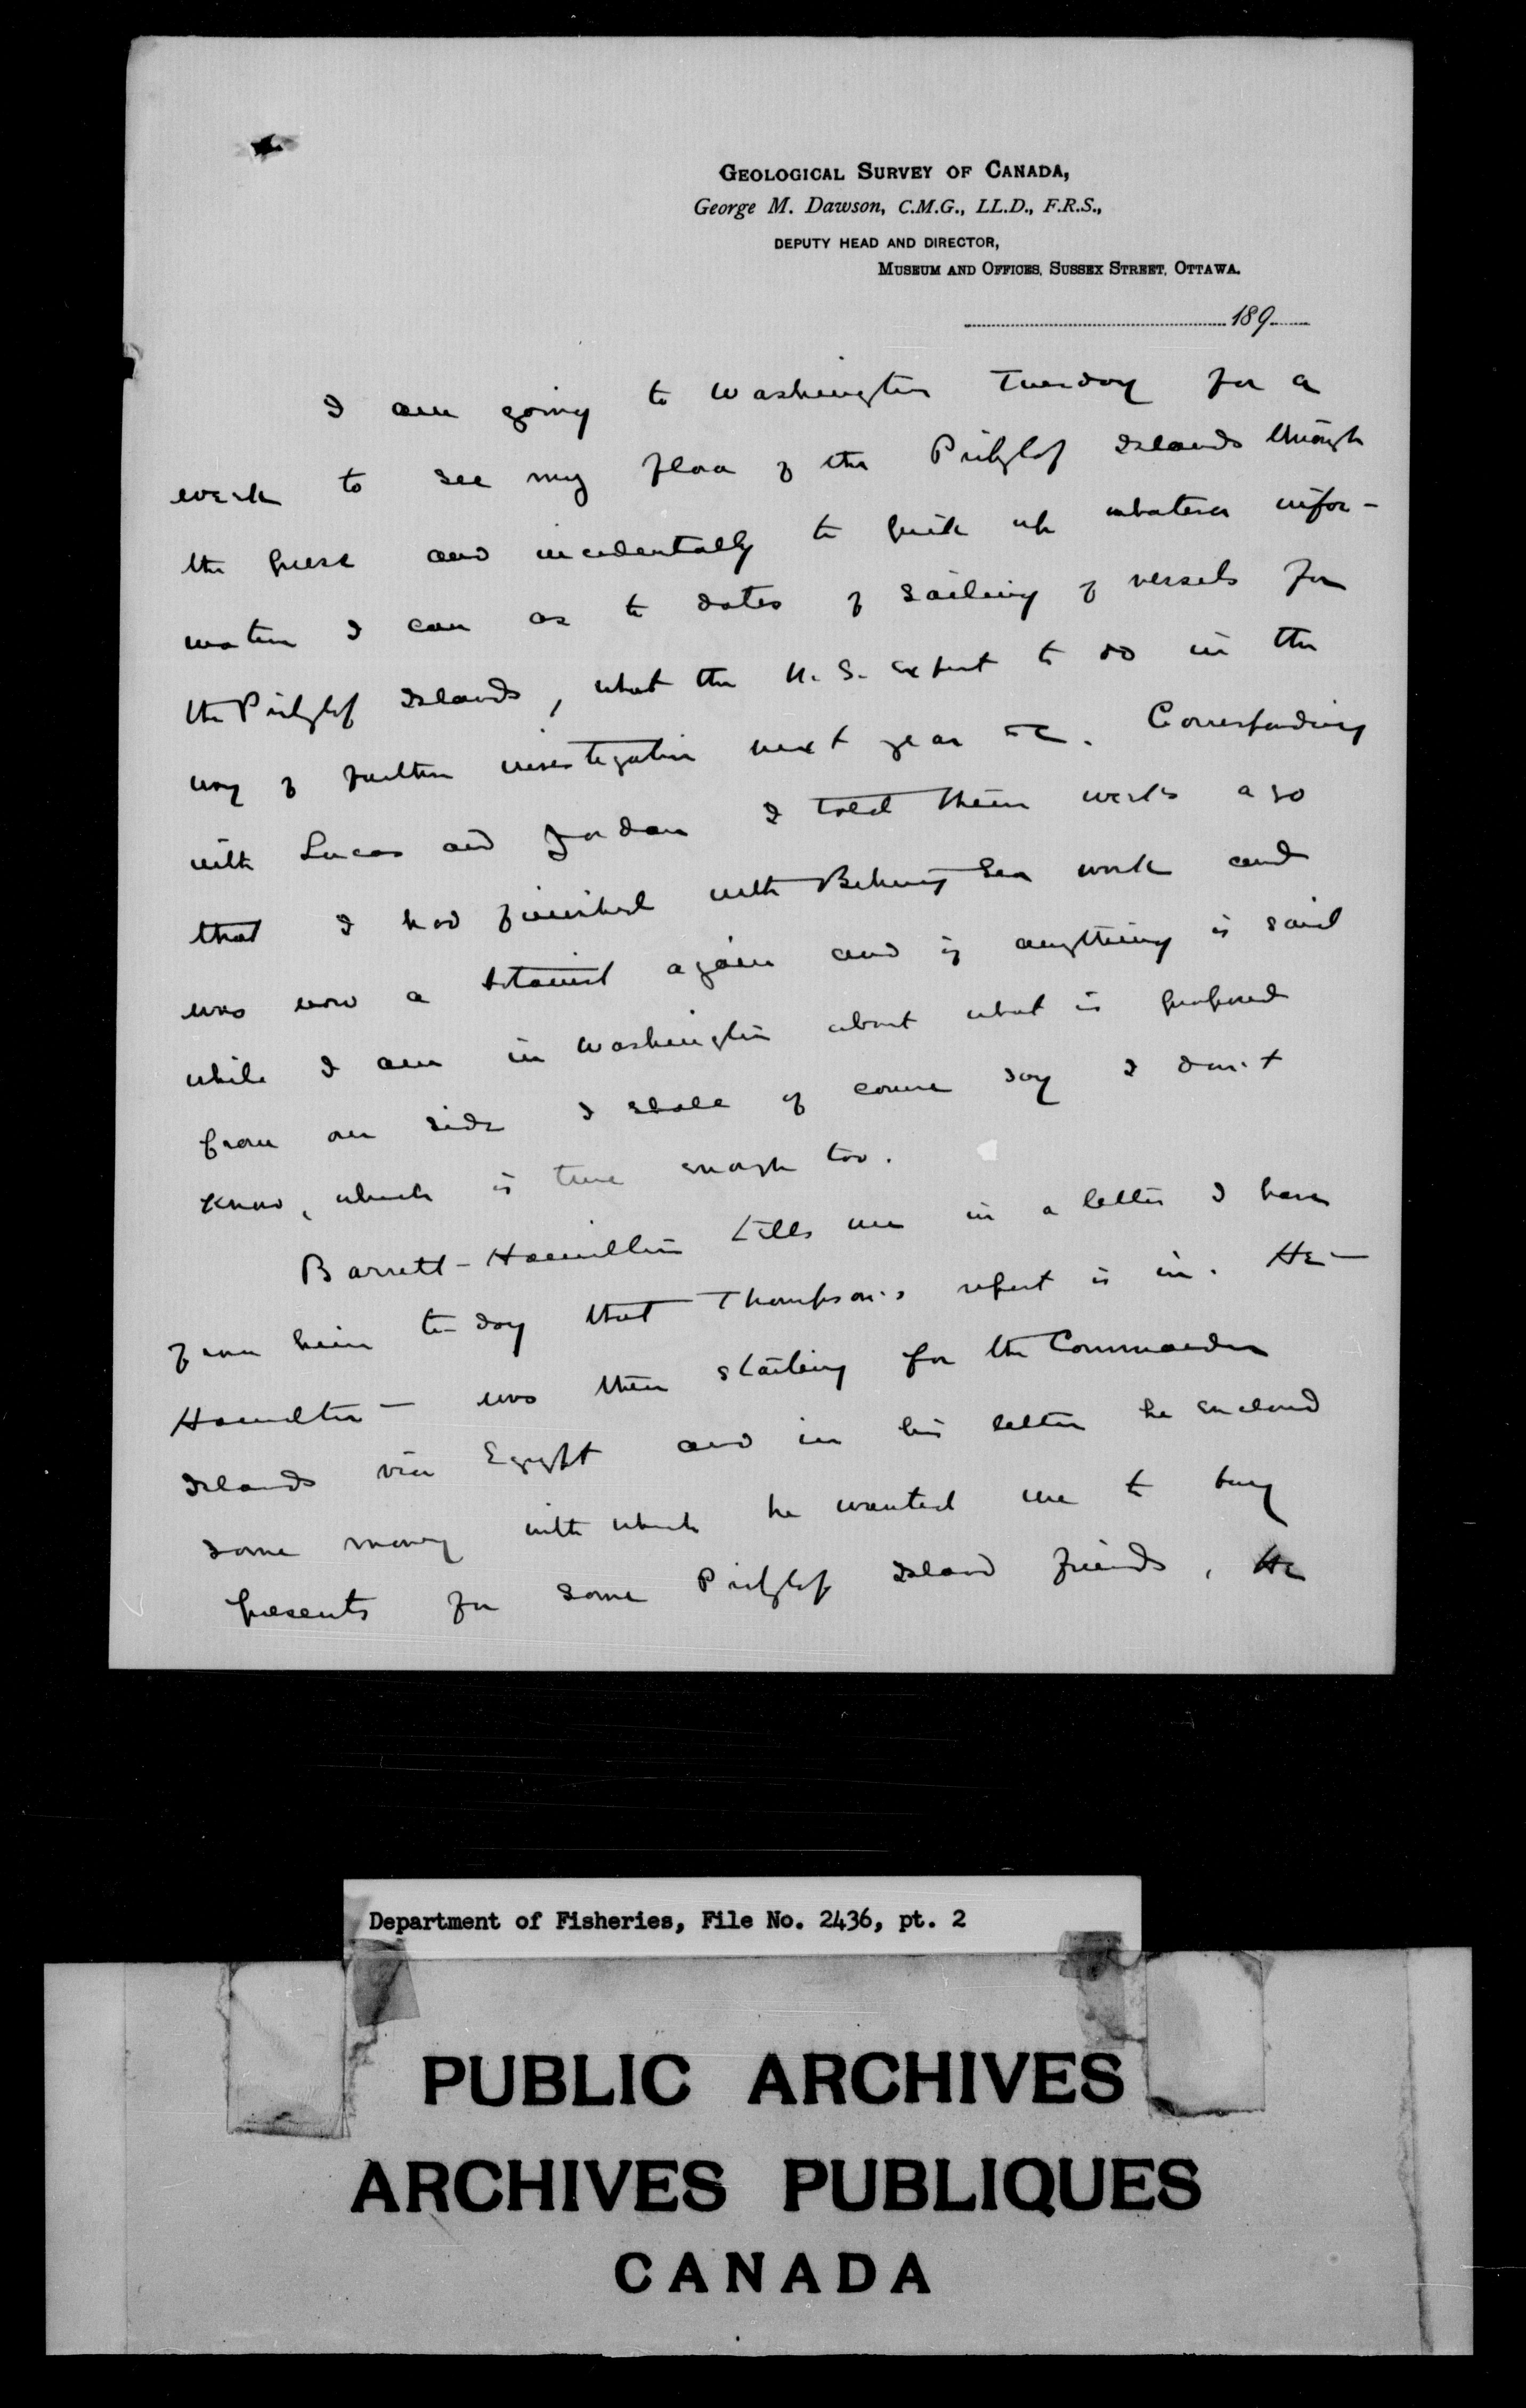 GEOLOGICAL SURVEY OF CANADA,
George M. Dawson, C.M.G., LL.D., F.R.S.,
DEPUTY HEAD AND DIRECTOR,
MUSEUM AND OFFICES, SUSSEX STREET, OTTAWA.
189
I am going to Washington Tuesday for a
week to see my flora of the Pribylof Islands through
the press and incidentally to pick up whatever infor-
mation I can as to dates of sailing of vessels for
the Pribylof Islands, what the U.S. expect to do in the
way of further investigation next year etc. Corresponding
with Lucas and Jordan I told them weeks ago
that I had finished with Behring Sea work and
was now a botanist again and if anything is said
while I am in Washington about what is proposed
from our side I shall of course say I don't
know, which is true enough too.
Barrett-Hamilton tells me in a letter I have
from him to-day that Thompson's report is in. He —
Hamilton — was then starting for the Commander
Islands via Egypt and in his letter he enclosed
some money with which he wanted me to buy
presents for some Pribylof Island friends. He
Department of Fisheries, File No. 2436, pt. 2
PUBLIC ARCHIVES
ARCHIVES PUBLIQUES
CANADA